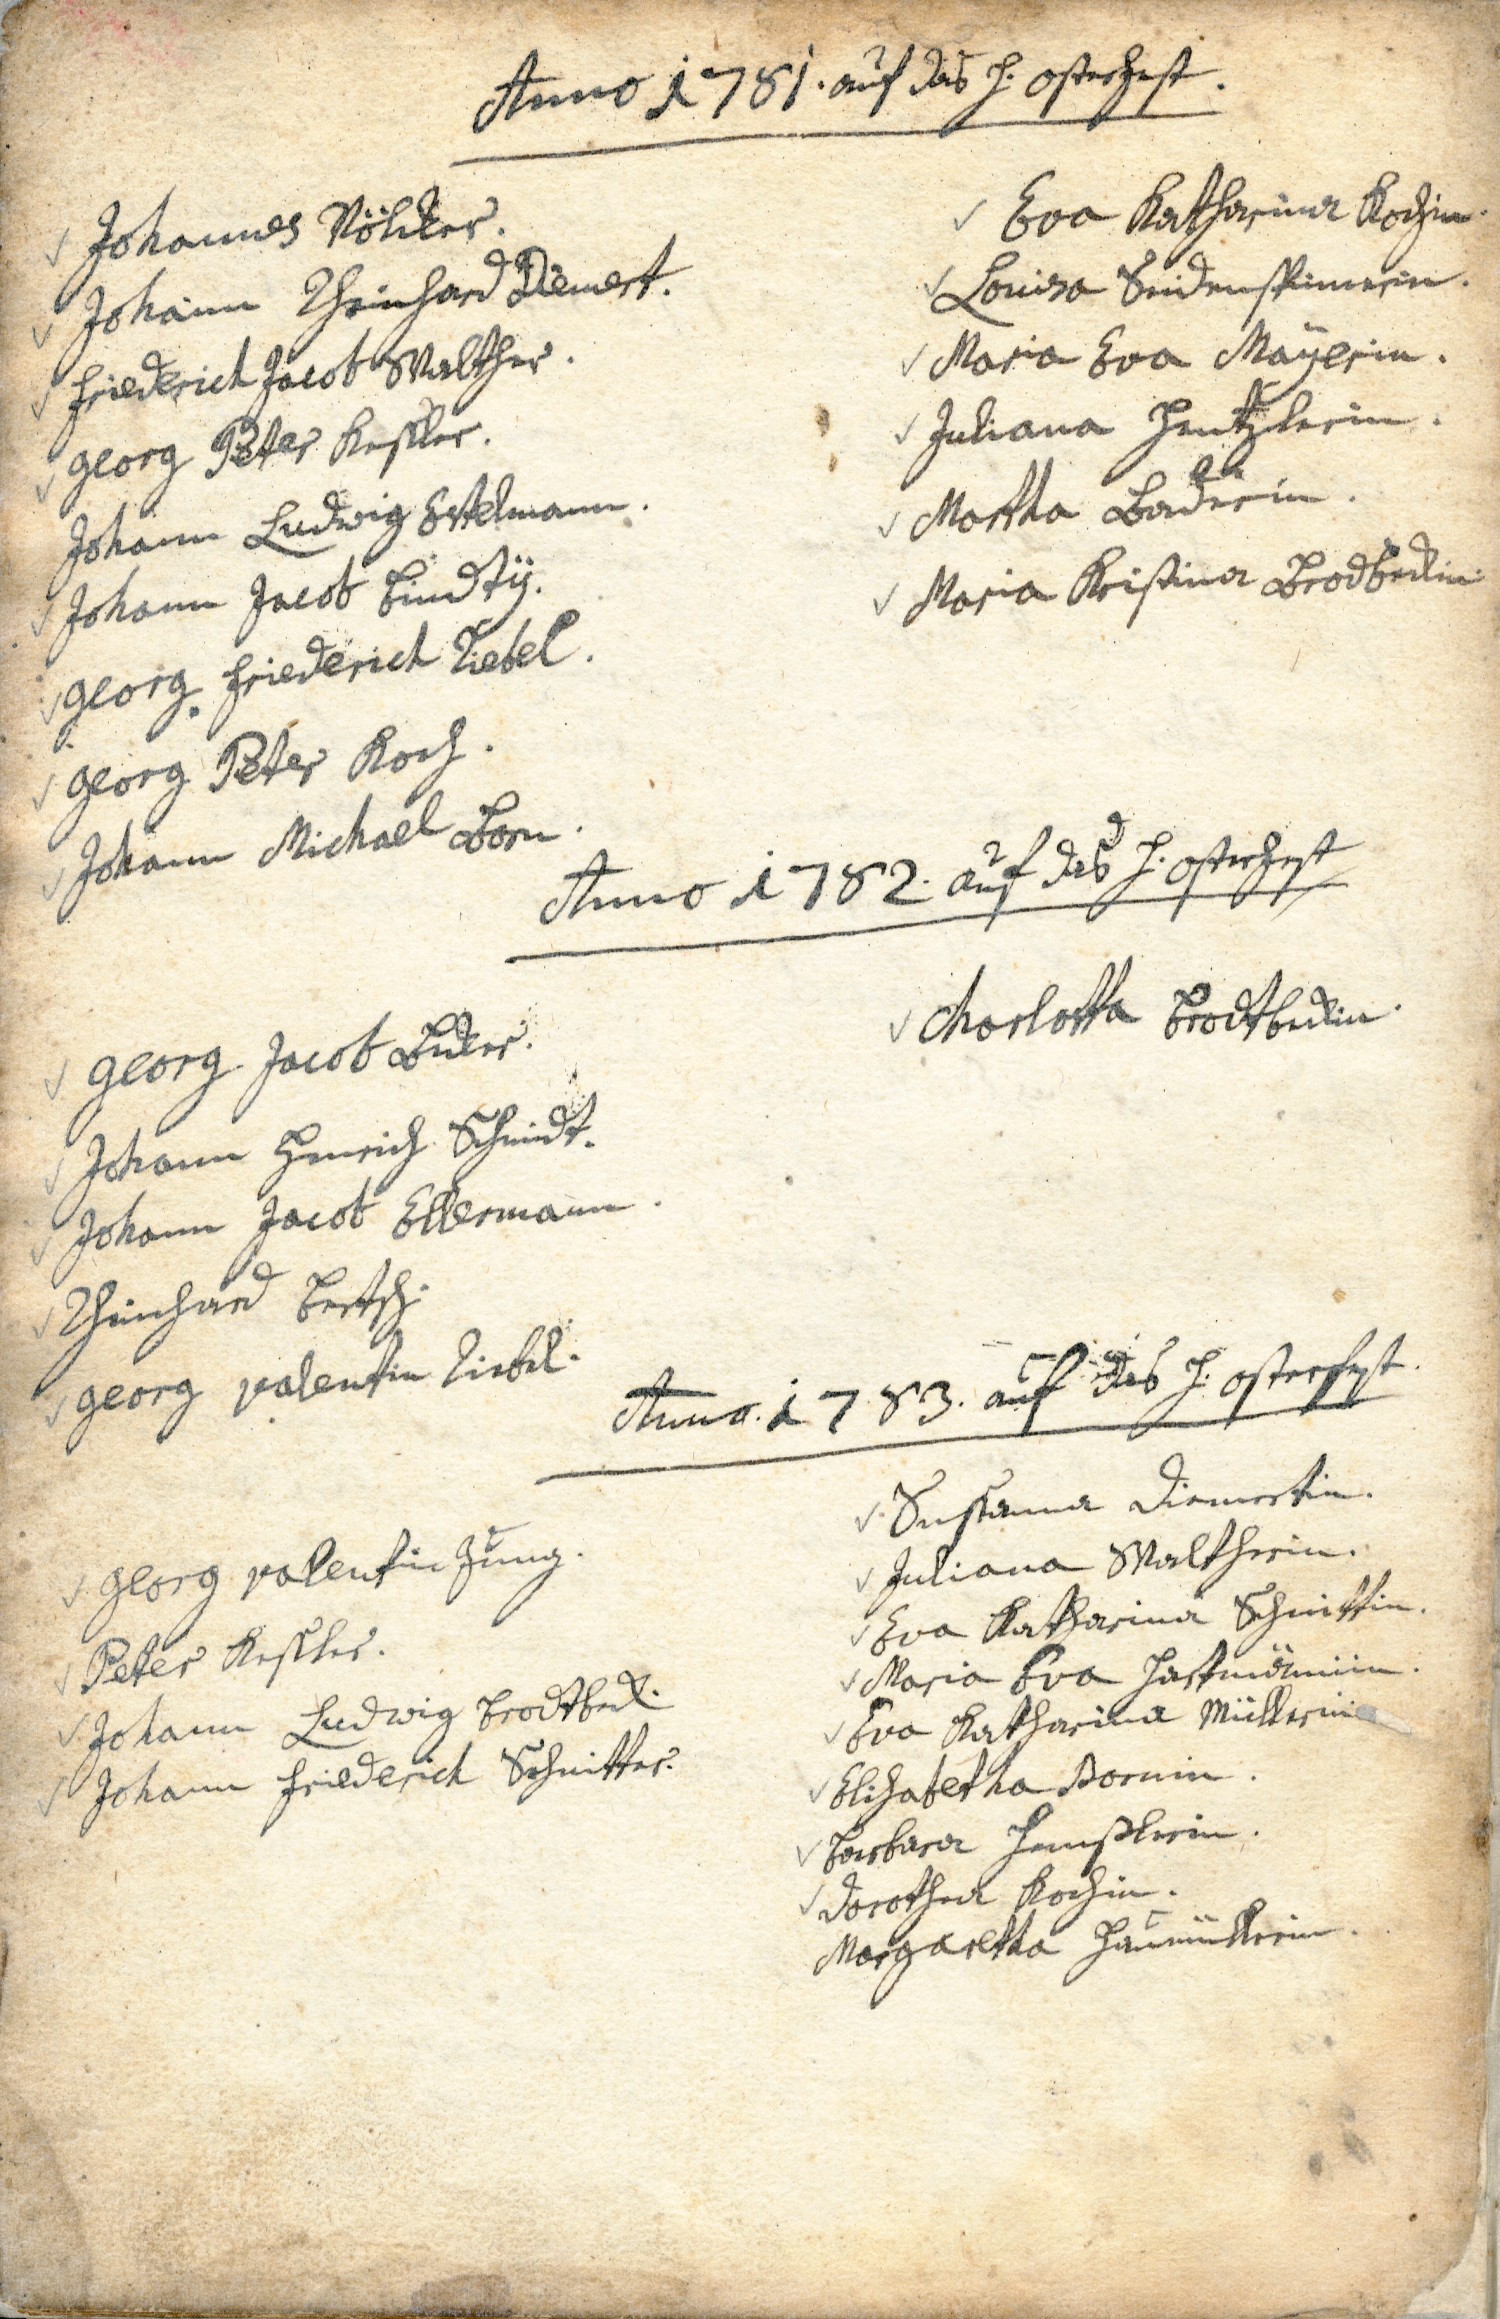 Anno 1781. auf das H. osterfest.
Johannes Völcker.
Johann Rheinhard Diemert.
friederich Jacob Walther.
georg Peter Keßler.
Johann Ludwig Estelmann.
Johann Jacob
georg friederich Ziebel.
georg Peter Koch.
Johann Michael Born.
Eva Katharina Kochin.
Louisa Seidenspinnerin.
Maria Eva Mayerin.
Juliana Hentzlerin.
Martha Baderin.
Maria Kristina Brodbeckin
Anno 1782. auf das H. osterfest
georg Jacob
Johann Henrich Schmidt.
Johann Jacob Ellermann.
Rheinhard Bertsch.
georg valentin Ziebel.
Charlotta Brodtbeckin.
Anno. 1783. auf das H. osterfest.
georg valentin Jung.
Peter Keßler.
Johann Ludwig Brodtbeck.
Johann friederich Schnitter.
Susanna Diemertin.
Juliana Waltherin.
Eva Katharina Schmittin.
Maria Eva Hartmännin.
Eva Katharina Müllerin
Elisabetha Bornin.
Barbara
Dorothea Kochin.
Margaretha Haumüllerin.